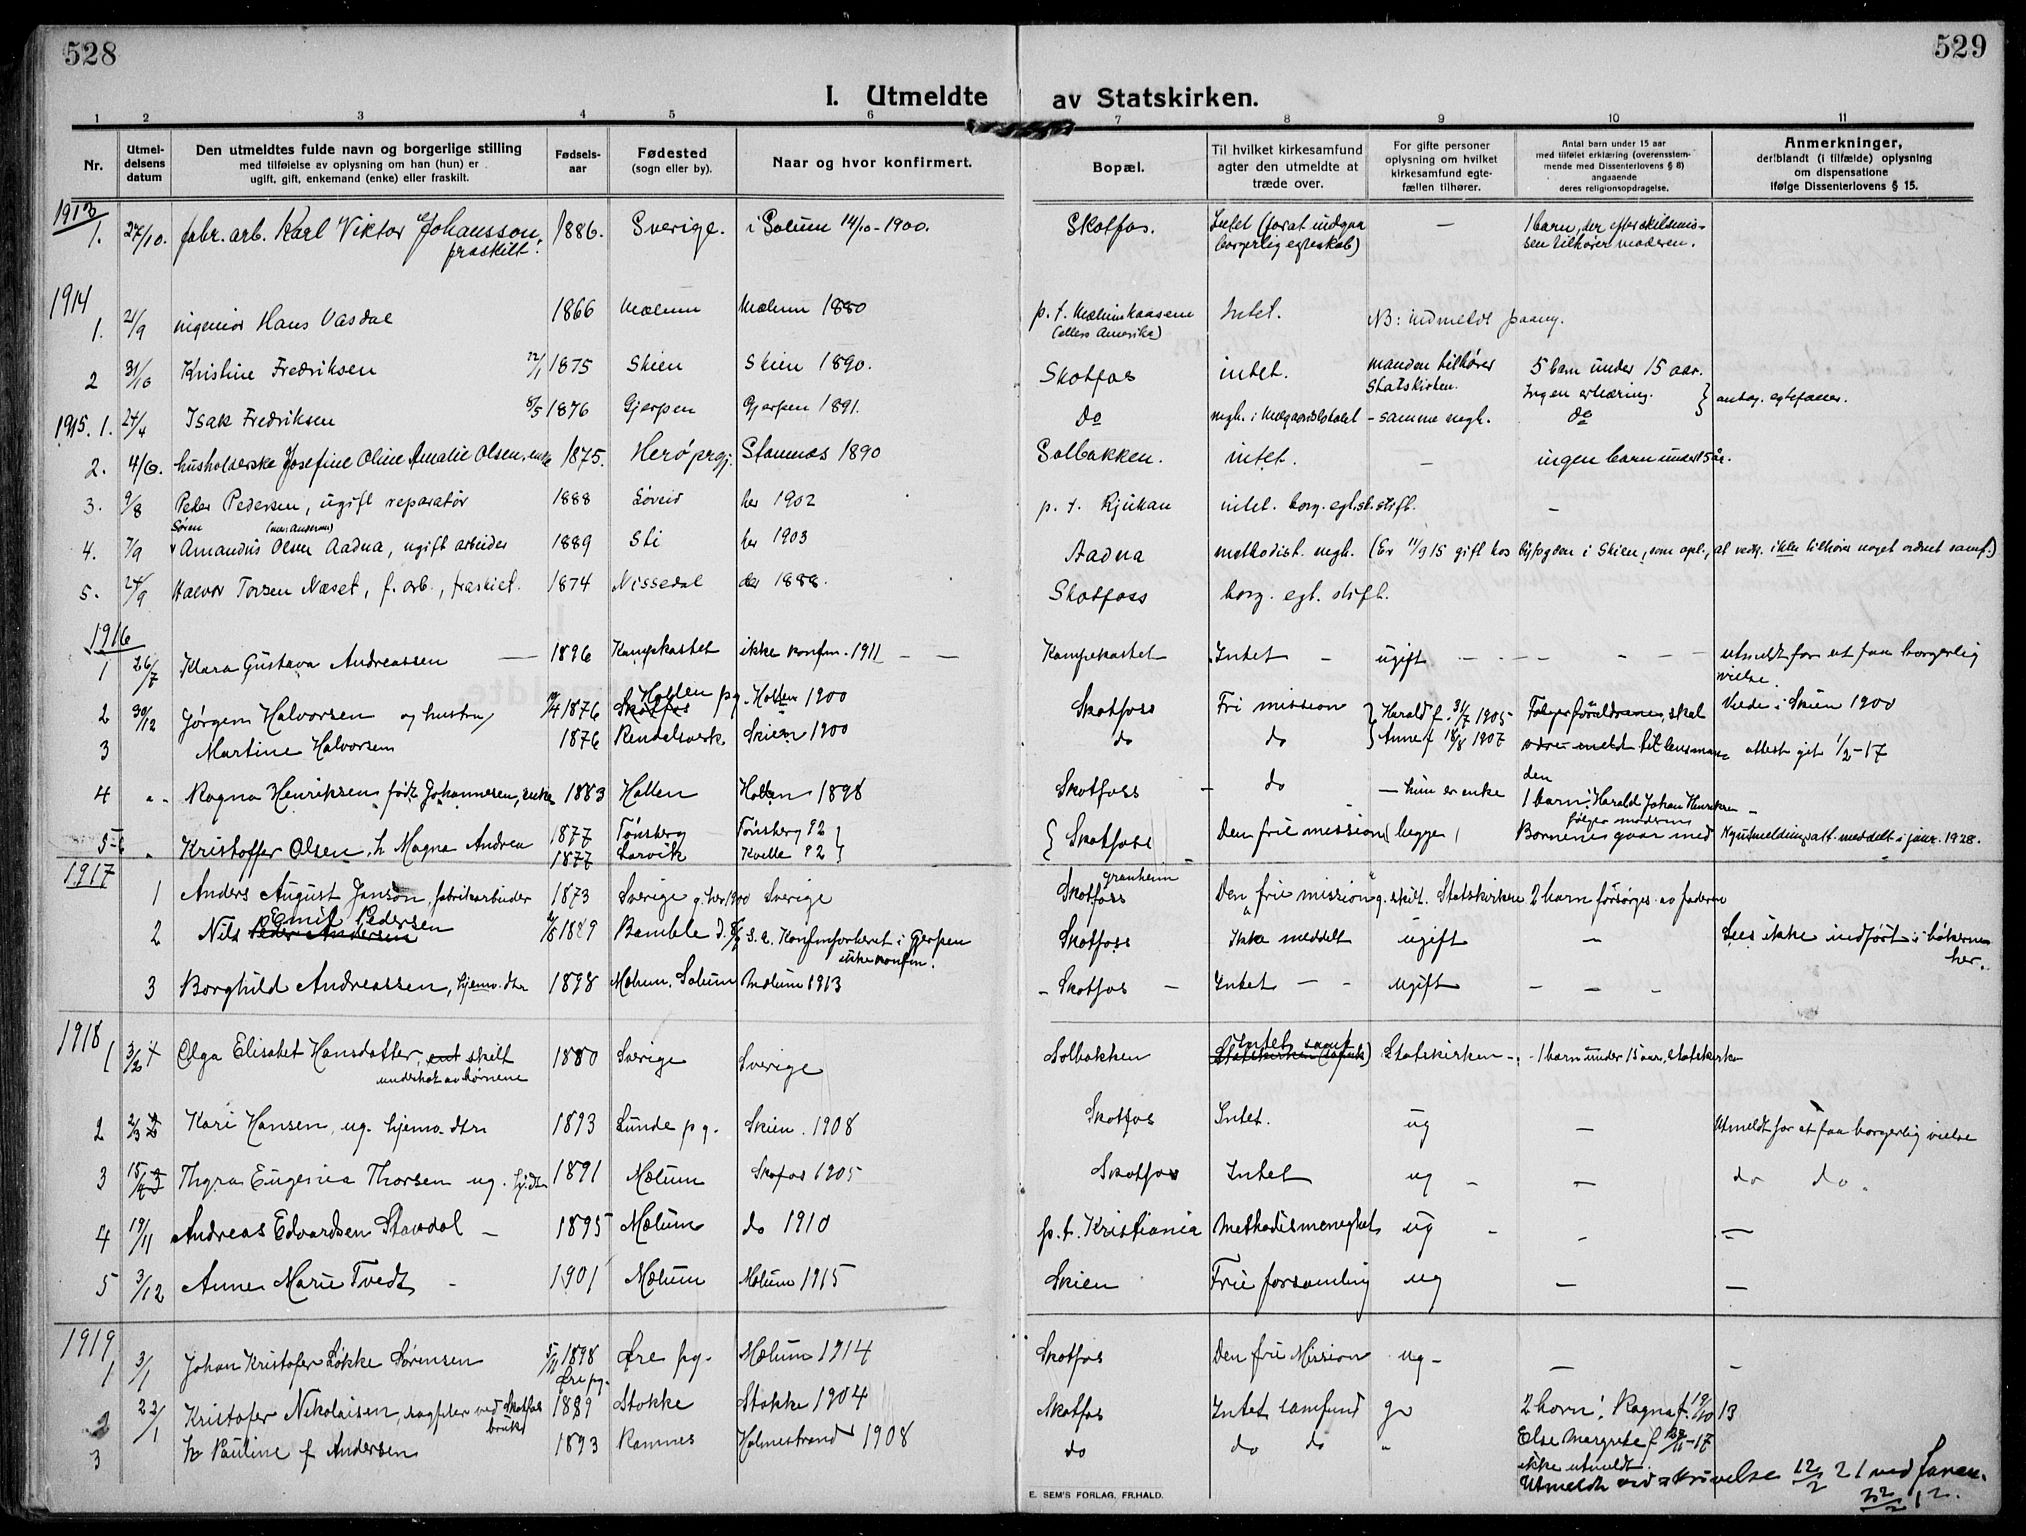 528
529
I. Utmeldte av Statskirken.
1 2 3 4 5 6 7 8 9 10 11
Nr.
Utmel-
delsens
datum
Den utmeldtes fulde navn og borgerlige stilling
med tilføielse av oplysning om han (hun) er
ugift, gift, enkemand (enke) eller fraskilt.
Fødsels-
aar
Fødested
(sogn eller by).
Naar og hvor konfirmert.
Bopæl.
Til hvilket kirkesamfund
agter den utmeldte at
træde over.
For gifte personer
oplysning om hvilket
kirkesamfund egte-
fællen tilhører.
Antal barn under 15 aar
med tilføiet erklæring (overensstem-
mende med Dissenterlovens § 8)
angaaende
deres religionsopdragelse.
Anmerkninger,
deriblandt (i tilfælde) oplysning
om dispensatione
ifølge Dissenterlovens § 15.
1913
1. 27/10. fabr. arb. Karl Viktor Johansson, 1886. Sverige. i Solum 14/10-1900. Skotfos. Intet (for at indgaa — 1 barn, der efter skilsmis-
fraskilt. borgerlig egteskab) sen tilhører moderen.
1914
1. 21/9 ingeniør Hans Vasdal 1866 Mælum Mælum 1880 p. t. Intet. NB: indmeldt paany.
(ellers Amerika)
2 31/10 Kristine Fredriksen 1875 Skien Skien 1890. Skotfos intet. manden tilhører 5 barn under 15 aar.
Statskirken. Ingen erklæring. antag. egtefæller.
1915. 1. 24/4 Isak Fredriksen 8/5 1876 Gjerpen Gjerpen 1891. Do - samme mgh. do
2. 4/6. husholderske Josefine Oline Amalie Olsen, enke 1875. Herø prgj. Stamnæs 1890 Solbakken. intet. — ingen barn under 15 år.
3. 9/8 Peder Pedersen, ugift reparatør 1888 Løveid her 1902 p. t. Rjukan intet. borg. egt.sk. stift. —
Søren
4. 7/9 Amandus Olsen Aadna, ugift arbeider 1889 Sti her 1903 Aadna methodist. mgh. (Er 11/9 15 gift hos byfogden i Skien, som opl., at vedk. ikke tilhører noget ordnet samf.)
5. 24/9 Halvor Torsen Næset, f. arb., fraskilt. 1874 Nissedal der 1888. Skotfoss borg. egt. stift.
1916
1 26/7 Klara Gustava Andreassen — 1896 Kampekastet ikke konfm. 1911 — — Kampekastet Intet - ugift — — — utmeldt for at faa borgerlig
vielse
2 30/12 Jørgen Halvorsen og hustru 1876 Skotfos Holden pg. Holden 1900 Skotfoss Fri mission Harald f. 31/7 1905 Viede i Skien 1900
3 Martine Halvorsen 1876 Skien 1900 do do Anne f 18/8 1907 attest git 1/2-17
4 " Ragna Henriksen født Johannesen, enke 1883 Holden Holden 1898 Skotfoss - do — hun er enke 1 barn: Harald Johan Henriksen
følger moderen
5-6 " Kristoffer Olsen, h. Magna Andrea 1877 Tønsberg Tønsberg 92 Skotfoss Den frie mission (begge) Børnene gaar med
1877 Larvik Kvelle 92
1917
1 Anders August Janson, fabrikarbeider 1873 Sverige Sverige Skotfoss Granheim Den frie mission g. skilt. Statskirken 2 barn forsørges av faderen
2 Nils Peder Andersen Emil Pedersen 1889 Bamble Skotfoss Ikke meddelt ugift — Sees ikke indført i bökerne
ikke konfm. her.
3 Borghild Andreassen, hjemv. dtr 1898 Mælum, Solum Mælum 1913 - Skotfos - Intet - - ugift — — —
1918
1 3/2 Olga Elisabet Hansdatter, skilt 1880 Sverige Sverige Solbakken Intet samf Statskirken - 1 barn under 15 aar, statskirken
underhol av børnene
2 2/3 Kari Hansen, ug. hjemv. dtr 1893 Lunde pg. Skien 1908 Skotfos Intet. ug — Utmeldt for at faa borgerlig vielse
3 15/4 Thyra Eugenia Thorsen ug. hj.dtr 1891 Mælum Skofos 1905 Skotfos Intet ug - — do do.
4 19/11 Andreas Edvardsen Stavdal — 1895 Mælum do 1910 p. t. Kristiania Methodismenighet ug - - —
5 3/12 Anne Marie Tvedt - 1901 Mælum Mælum 1915 Skien Frie forsamling ug — —
1919
1 3/1 Johan Kristofer Løkke Sørensen 1898 Øre pg. Mælum 1914 Skotfos Den frie Mission ug - — —
Øre pg.
2 22/1 Kristofer Nikolaisen, sagfiler ved Skotfos 1889 Stokke Stokke 1904 Skotfos Intet samfund g 2 barn: Ragna f. 19/10 13
bruk
3 h Pauline f Andersen 1893 Ramnes Holmestrand 1908 do do do " Else Margrete f -17
ikke utmeldt.
Utmeldt ved skrivelse 12/2 21 ved faren.
E. SEM'S FORLAG, FR.HALD.